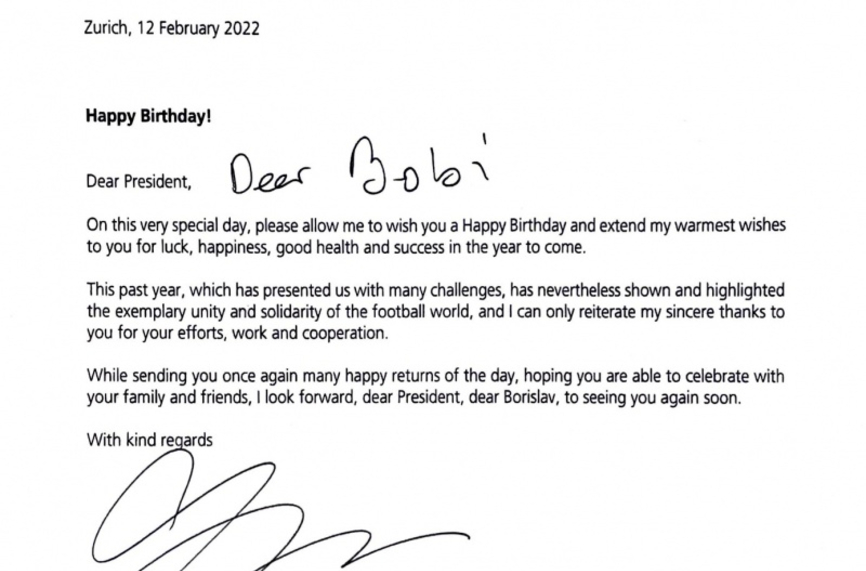 Zurich, 12 February 2022
Happy Birthday!
Dear President, Dear Bobi
On this very special day, please allow me to wish you a Happy Birthday and extend my warmest wishes
to you for luck, happiness, good health and success in the year to come.
This past year, which has presented us with many challenges, has nevertheless shown and highlighted
the exemplary unity and solidarity of the football world, and I can only reiterate my sincere thanks to
you for your efforts, work and cooperation.
While sending you once again many happy returns of the day, hoping you are able to celebrate with
your family and friends, I look forward, dear President, dear Borislav, to seeing you again soon.
With kind regards